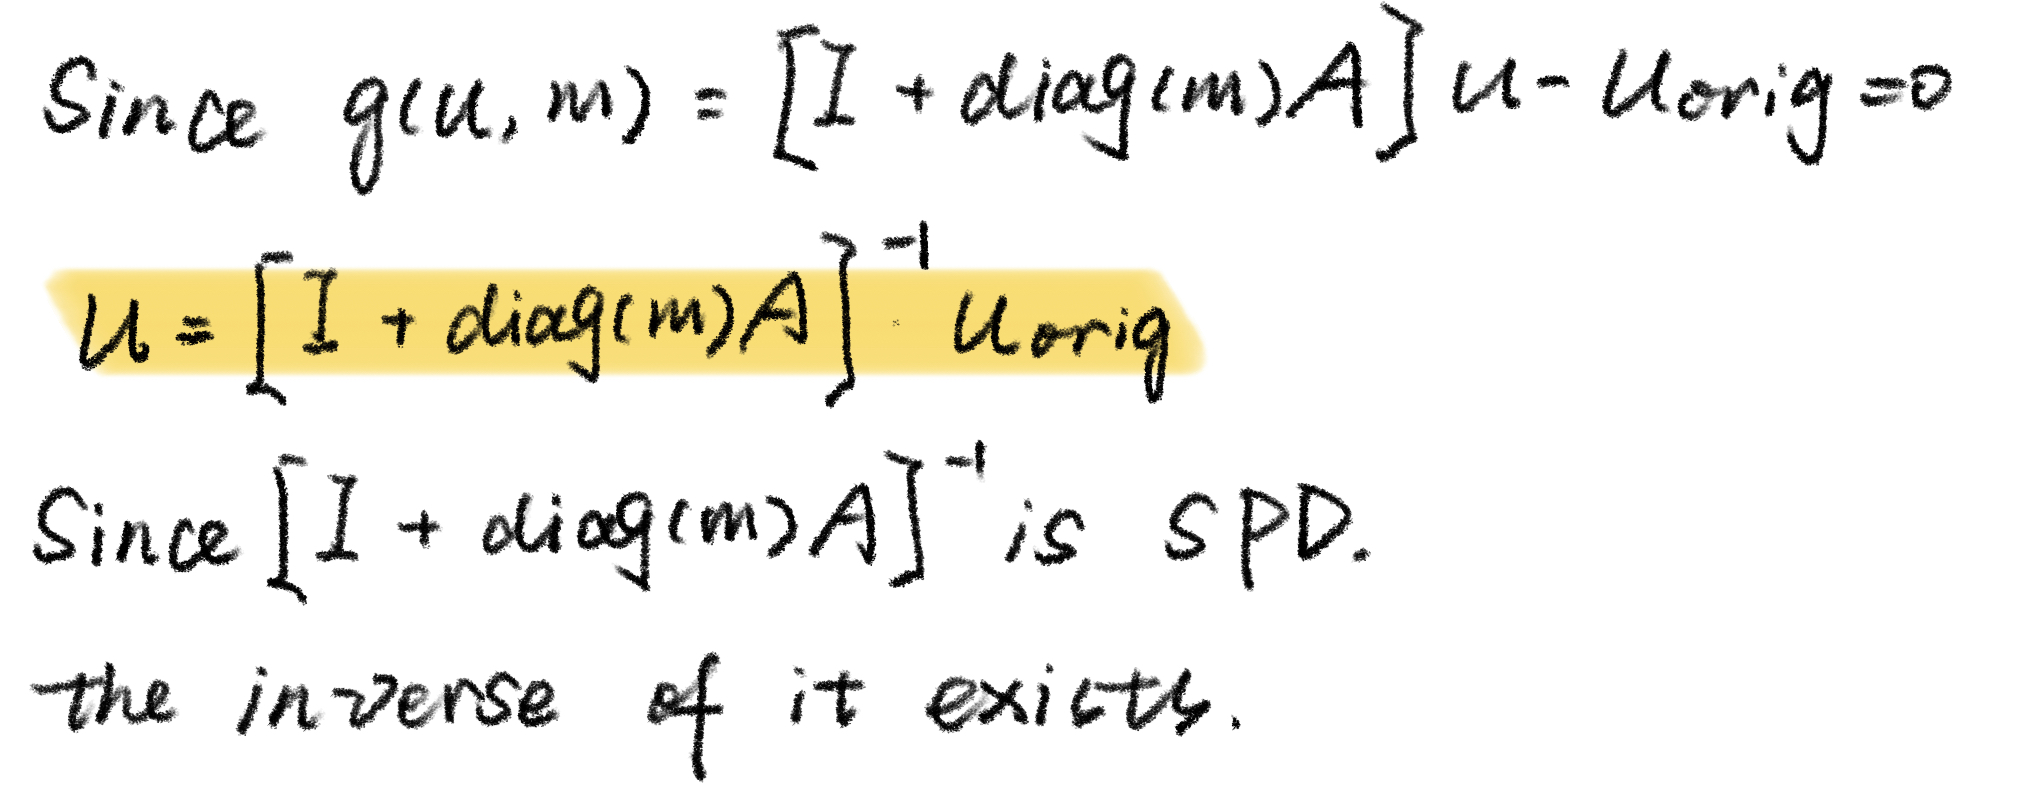 Since g(u, m) = [I + diag(m)A] u - u_orig = 0
u = [I + diag(m)A]^-1 u_orig
Since [I + diag(m)A]^-1 is SPD.
the inverse of it exists.